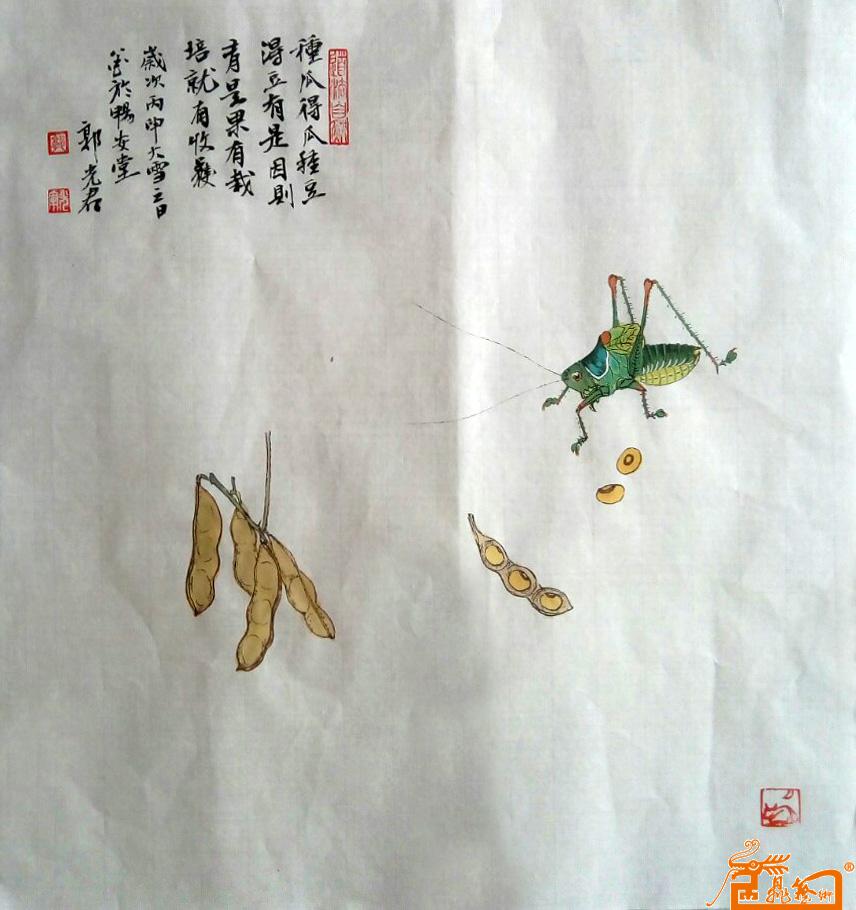 種瓜得瓜種豆
得豆有是因則
有是果有栽
培就有收穫
歲次丙申大雪三日
於暢安堂
郭光君